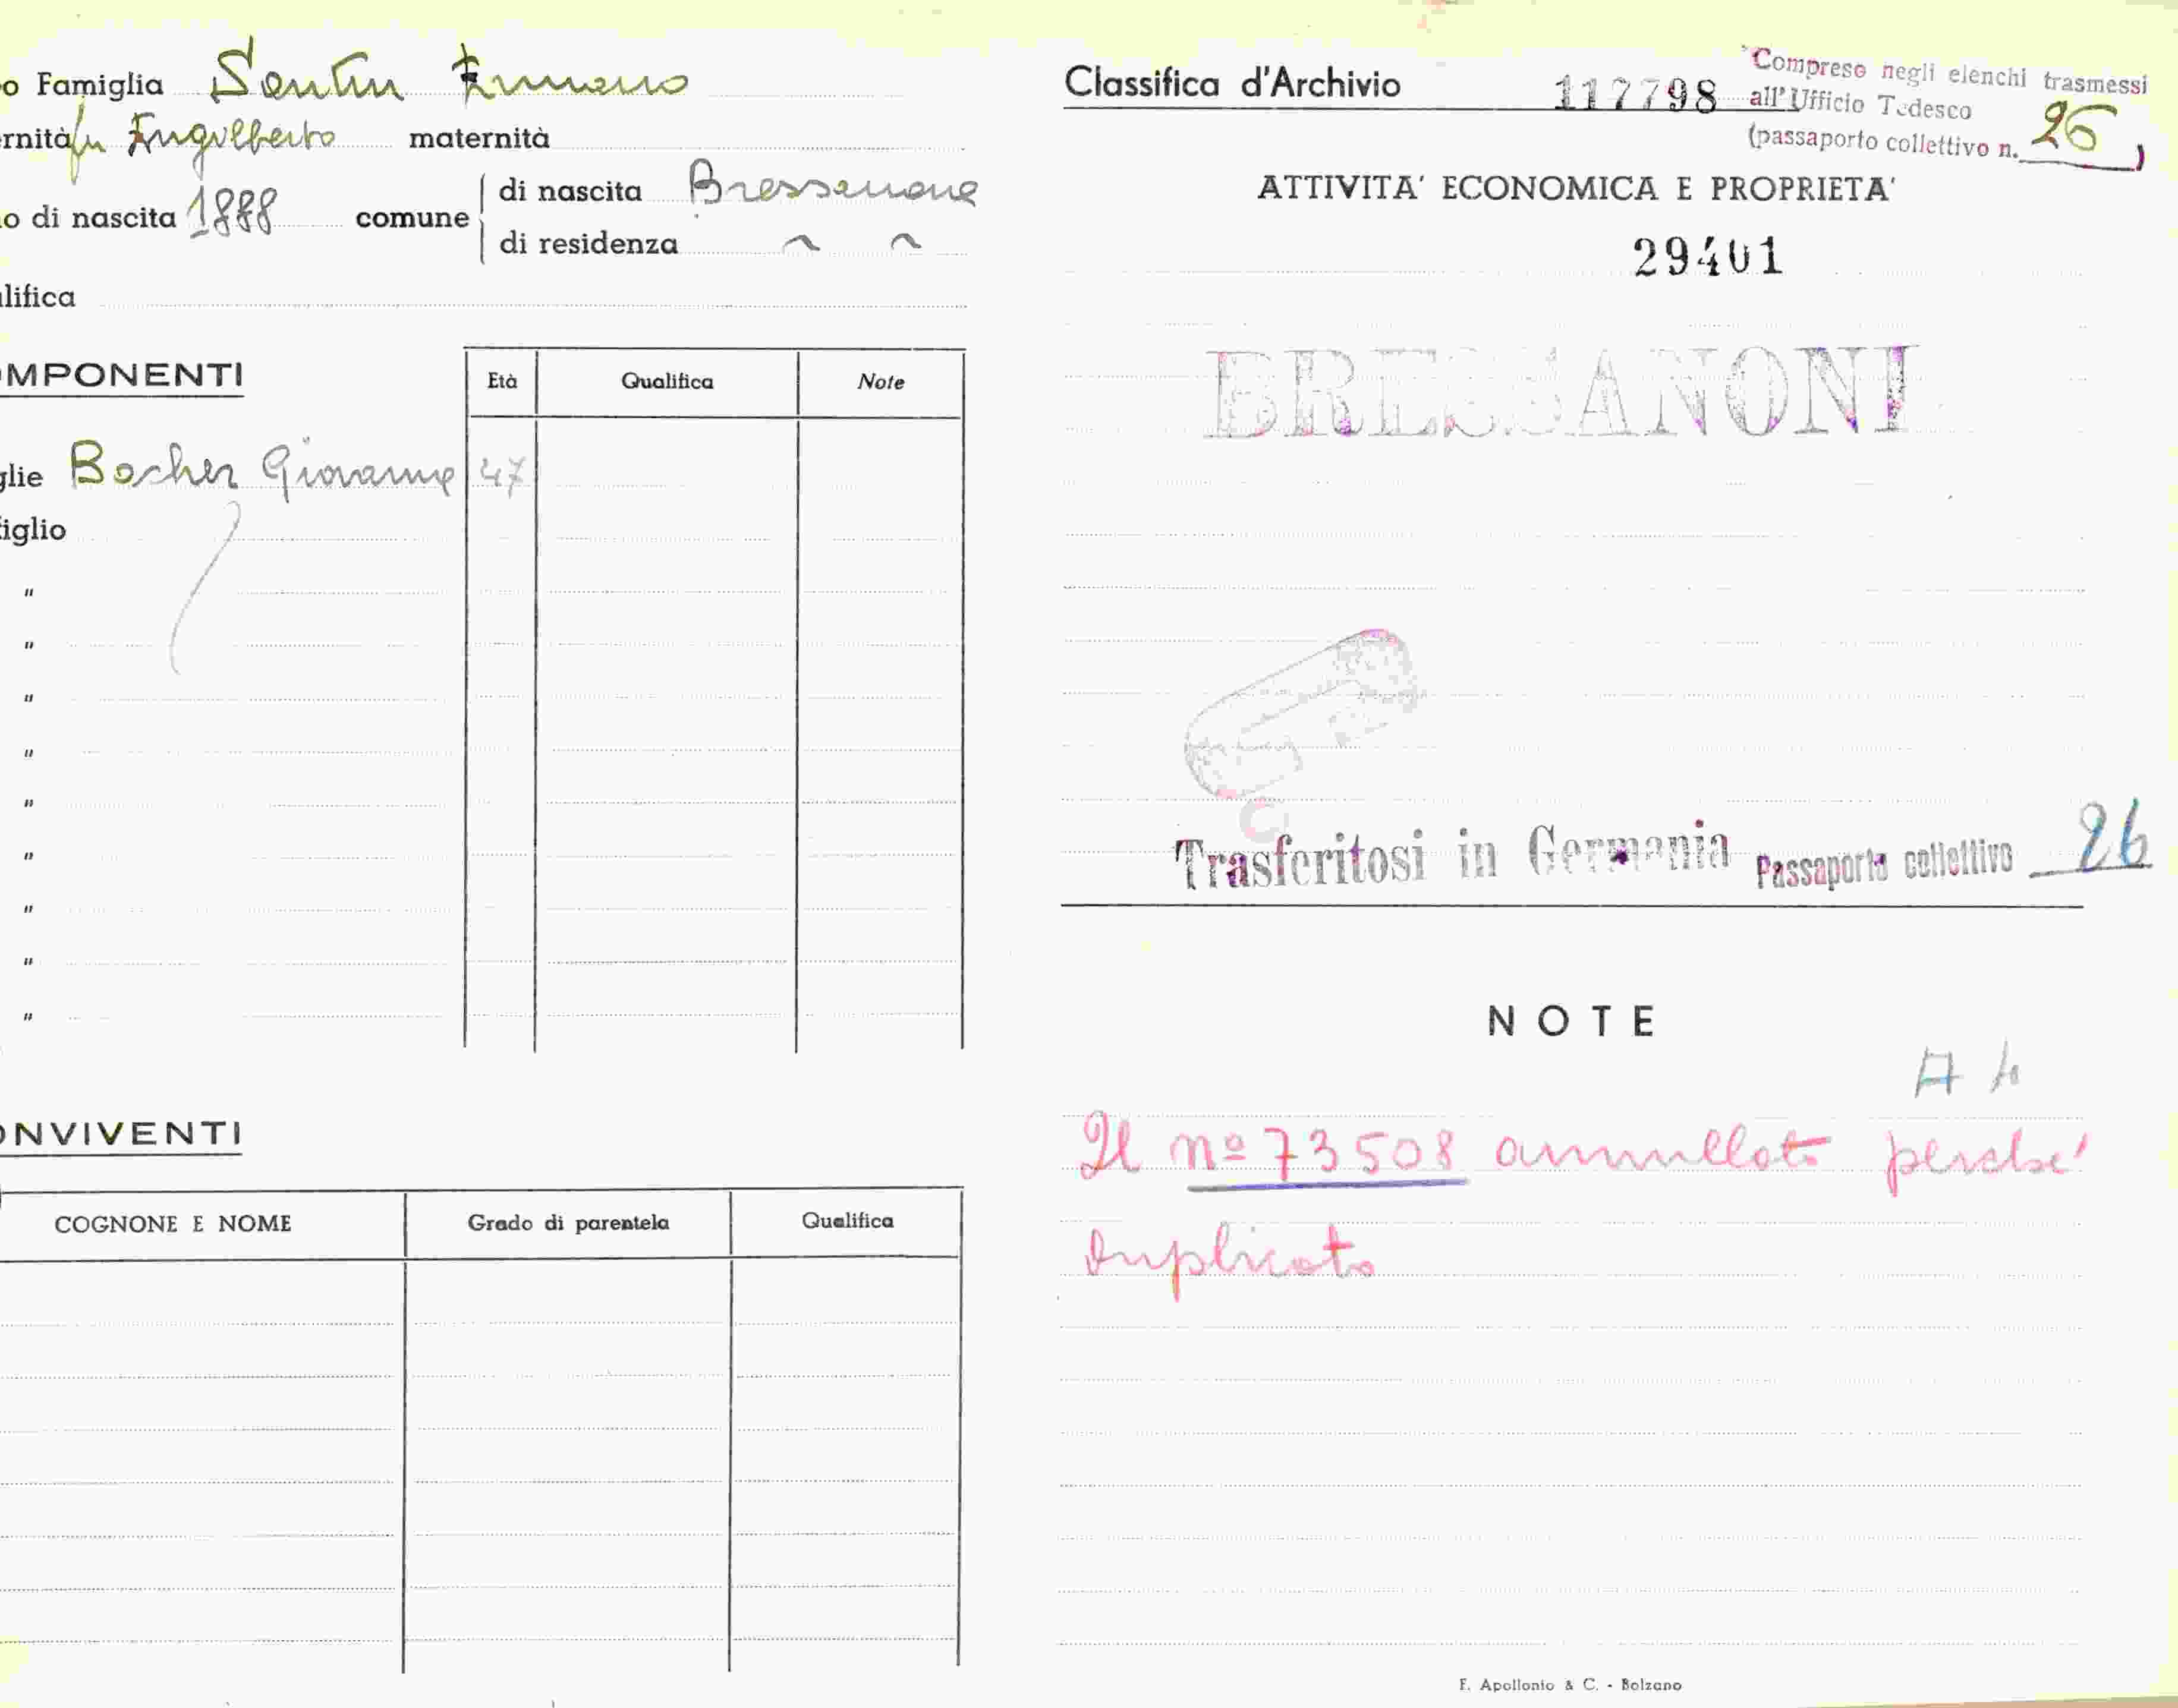 o Famiglia Sentin Ermanno
rnità fu Engilberto maternità
o di nascita 1888 comune di nascita Bressanone
di residenza " "
lifica
OMPONENTI
Età Qualifica Note
glie Bocher Giovanna 47
figlio
"
"
"
"
"
"
"
"
"
ONVIVENTI
COGNONE E NOME Grado di parentela Qualifica
Classifica d'Archivio 117798
Compreso negli elenchi trasmessi
all'Ufficio Tedesco
(passaporto collettivo n. 26)
ATTIVITA' ECONOMICA E PROPRIETA'
29401
BRESSANONE
Trasferitosi in Germania Passaporto collettivo 26
NOTE
Il nº 73508 annullato perché
duplicato
F. Apollonio & C. - Bolzano